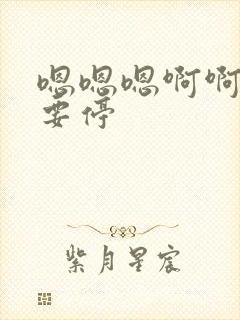 嗯嗯嗯啊啊
要停
紫月星宸